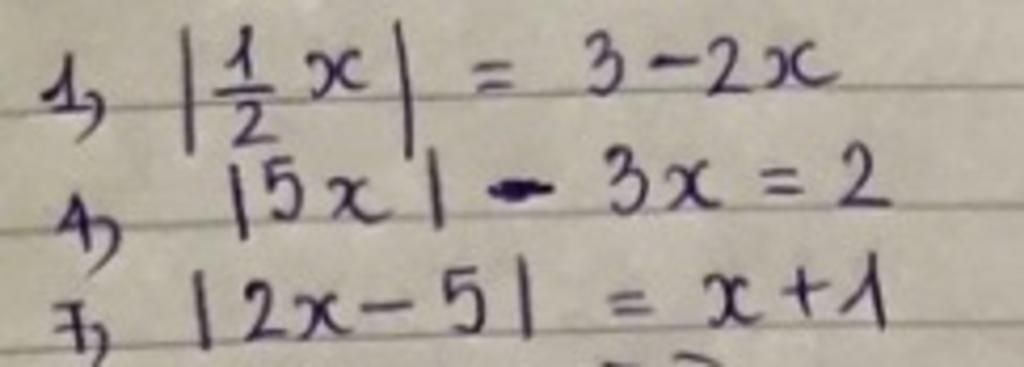 1, |1/2 x| = 3 - 2x
4, |5x| - 3x = 2
7, |2x - 5| = x + 1